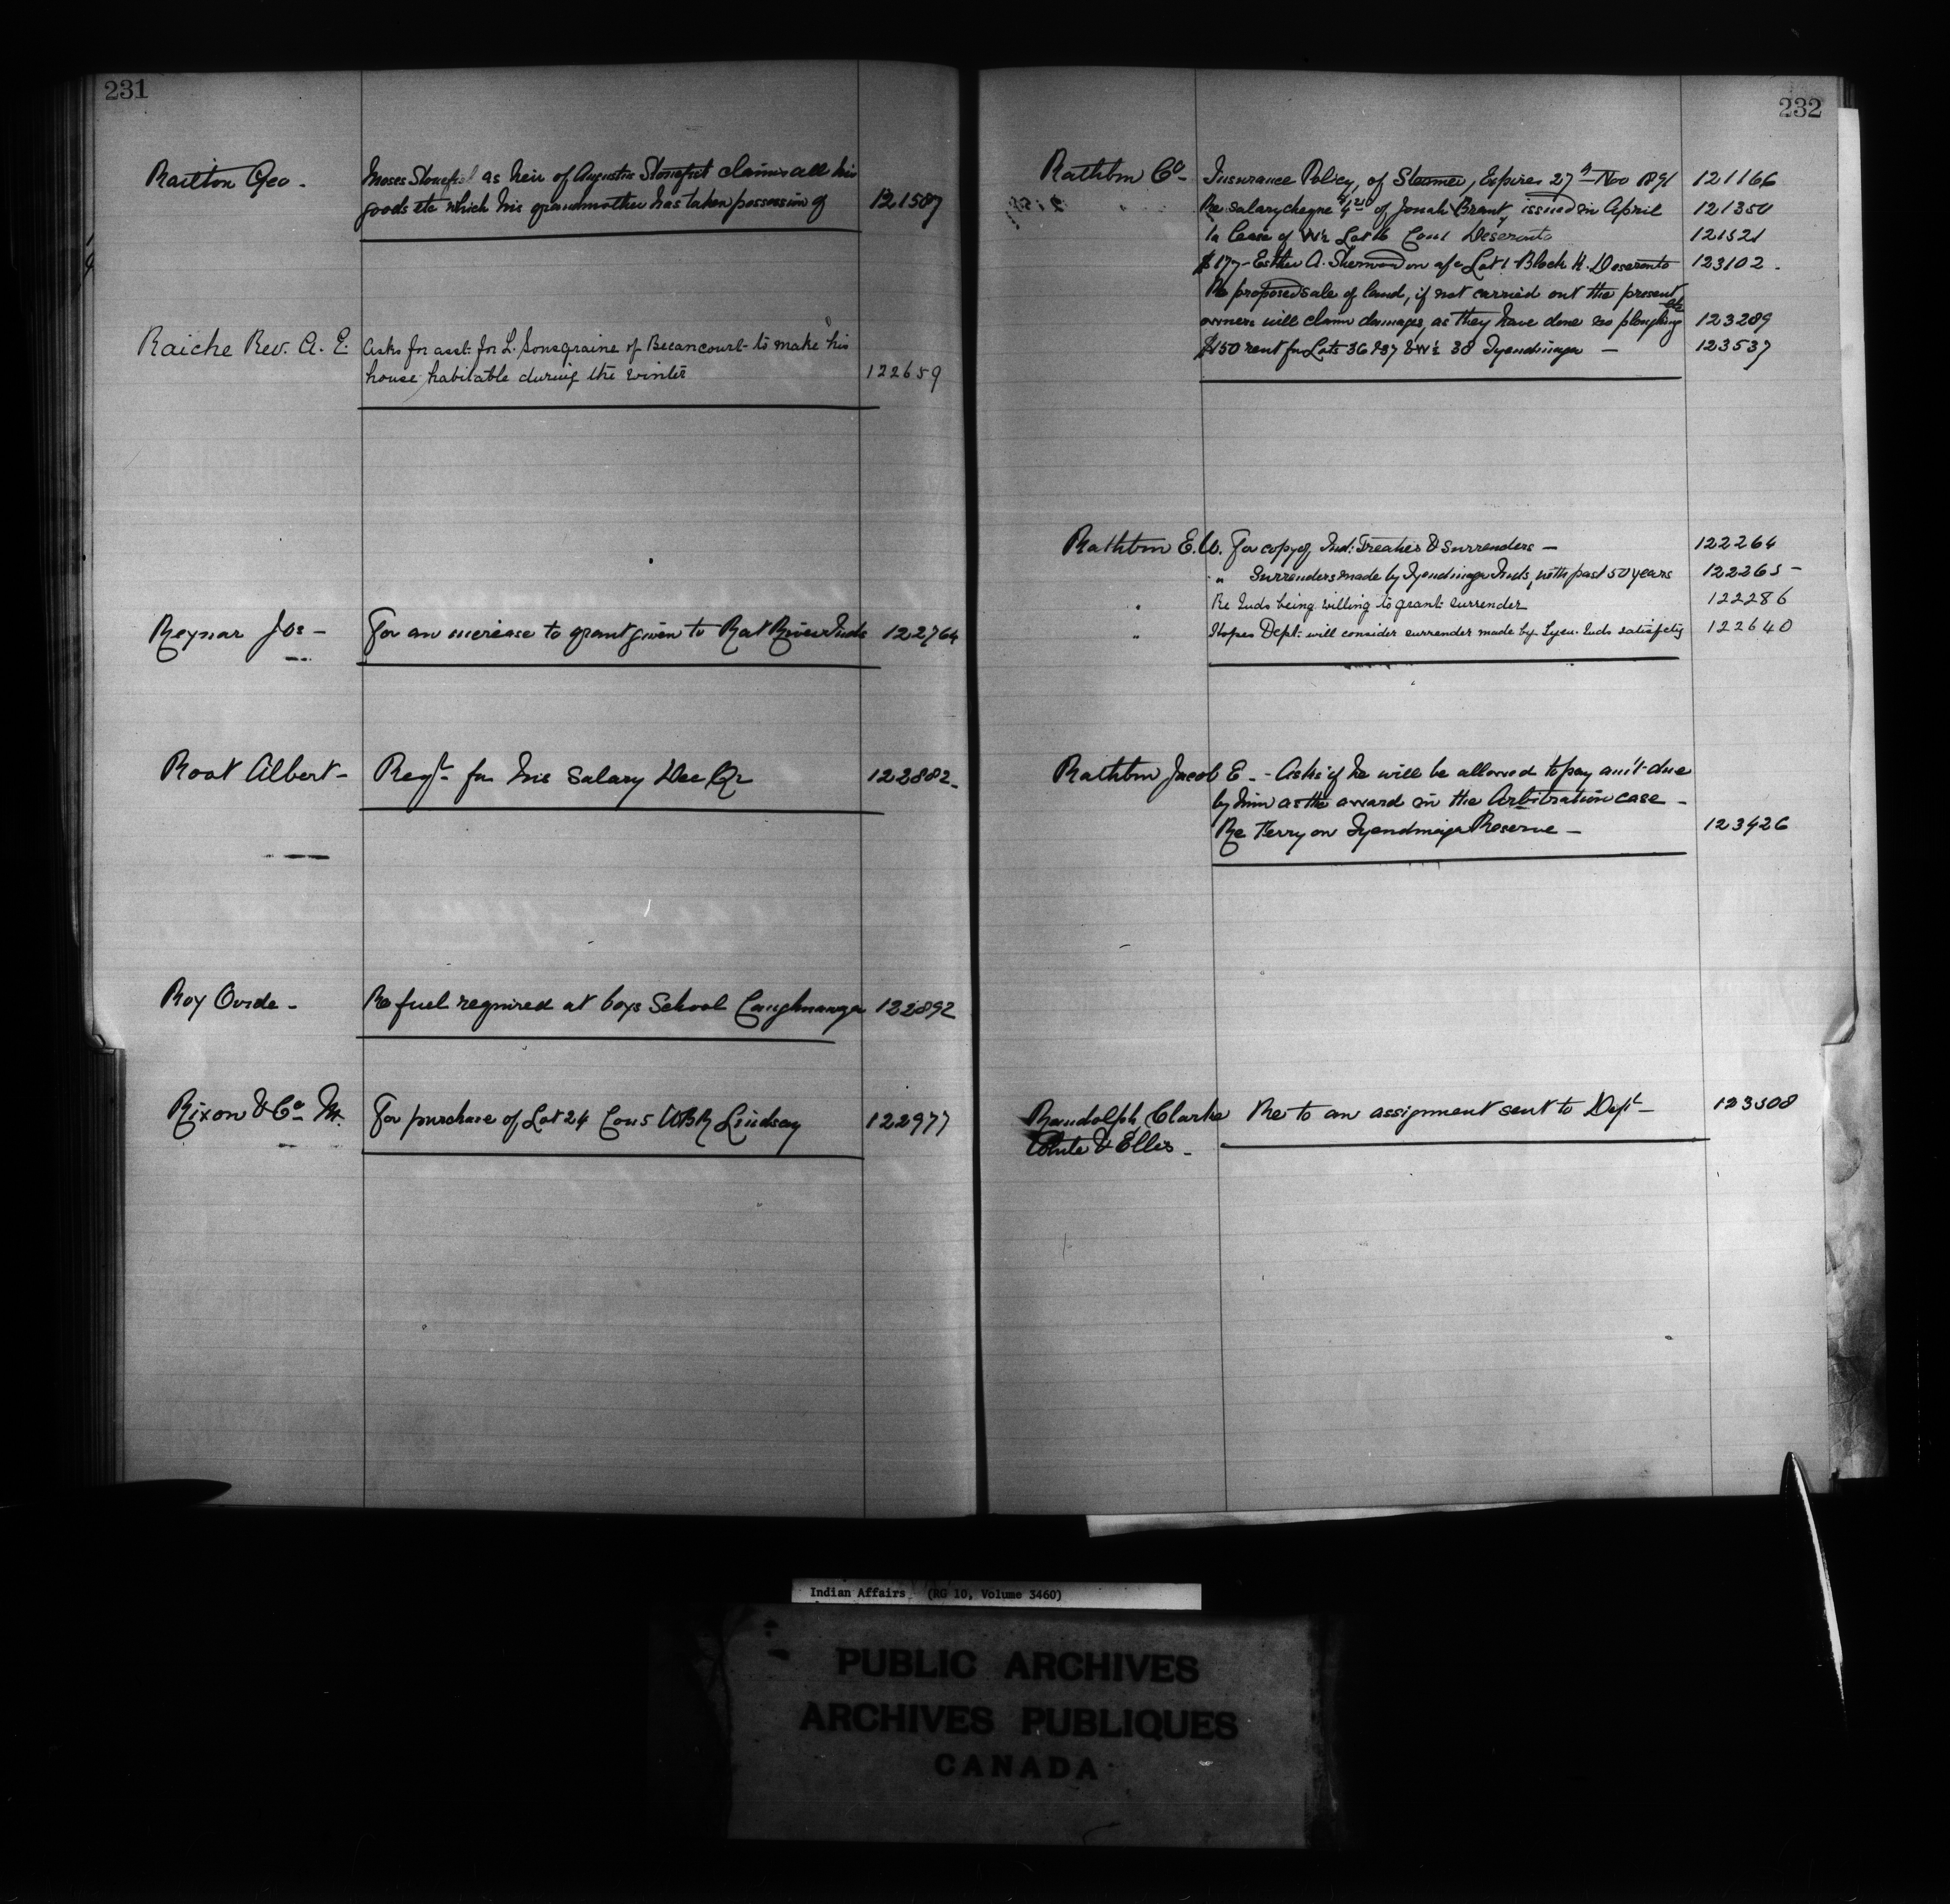 231
Railton Geo. Moses Stonefish as heir of Augustus Stonefish claims all his
goods etc which his grandmother has taken possession of 121587
Raiche Rev. A. E. Asks for asst. for L. Sonsgraine of Becancourt to make his
house habitable during the winter 122659
Reynar Jos - For an increase to grant given to Rat River Inds 122764
Root Albert - Reqt. for his Salary Dec Qr 122882-
Roy Ovide - Re fuel required at boys School Caughnawaga 122892
Rixon & Co. M. For purchase of Lot 24 Con 5 WBR Lindsay 122977
232
Rathbun Co - Insurance Policy, of Steamer, Expires 27th Nov 1891 121166
" Re salary cheque of Jonah Brant, issued in April 121350
In lease of W½ Lot 16 Con 1 Deseronto 121521
$177- Esther A. Sherwood on a/c Lot 1 Block K. Deseronto 123102.
Re proposed sale of land, if not carried out the present
owners will claim damages, as they have done so ploughing etc 123289
$150 rent for Lots 36 & 37 & W½ 38 Tyendinaga - 123537
Rathbun E.W. For copy of Ind: Treaties & Surrenders - 122264
" Surrenders made by Tyendinaga Inds, with past 50 years 122265-
" Re Inds being willing to grant surrender 122286
" Hopes Dept: will consider surrender made by Tyen. Inds satisfcty 122640
Rathbun Jacob E. - Asks if he will be allowed to pay am't due
by him as the award in the Arbitration case -
Re Terry on Tyendinaga Reserve - 123426
Randolph, Clarke Re to an assignment sent to Dept - 123508
White & Ellis -
Indian Affairs (RG 10, Volume 3460)
PUBLIC ARCHIVES
ARCHIVES PUBLIQUES
CANADA